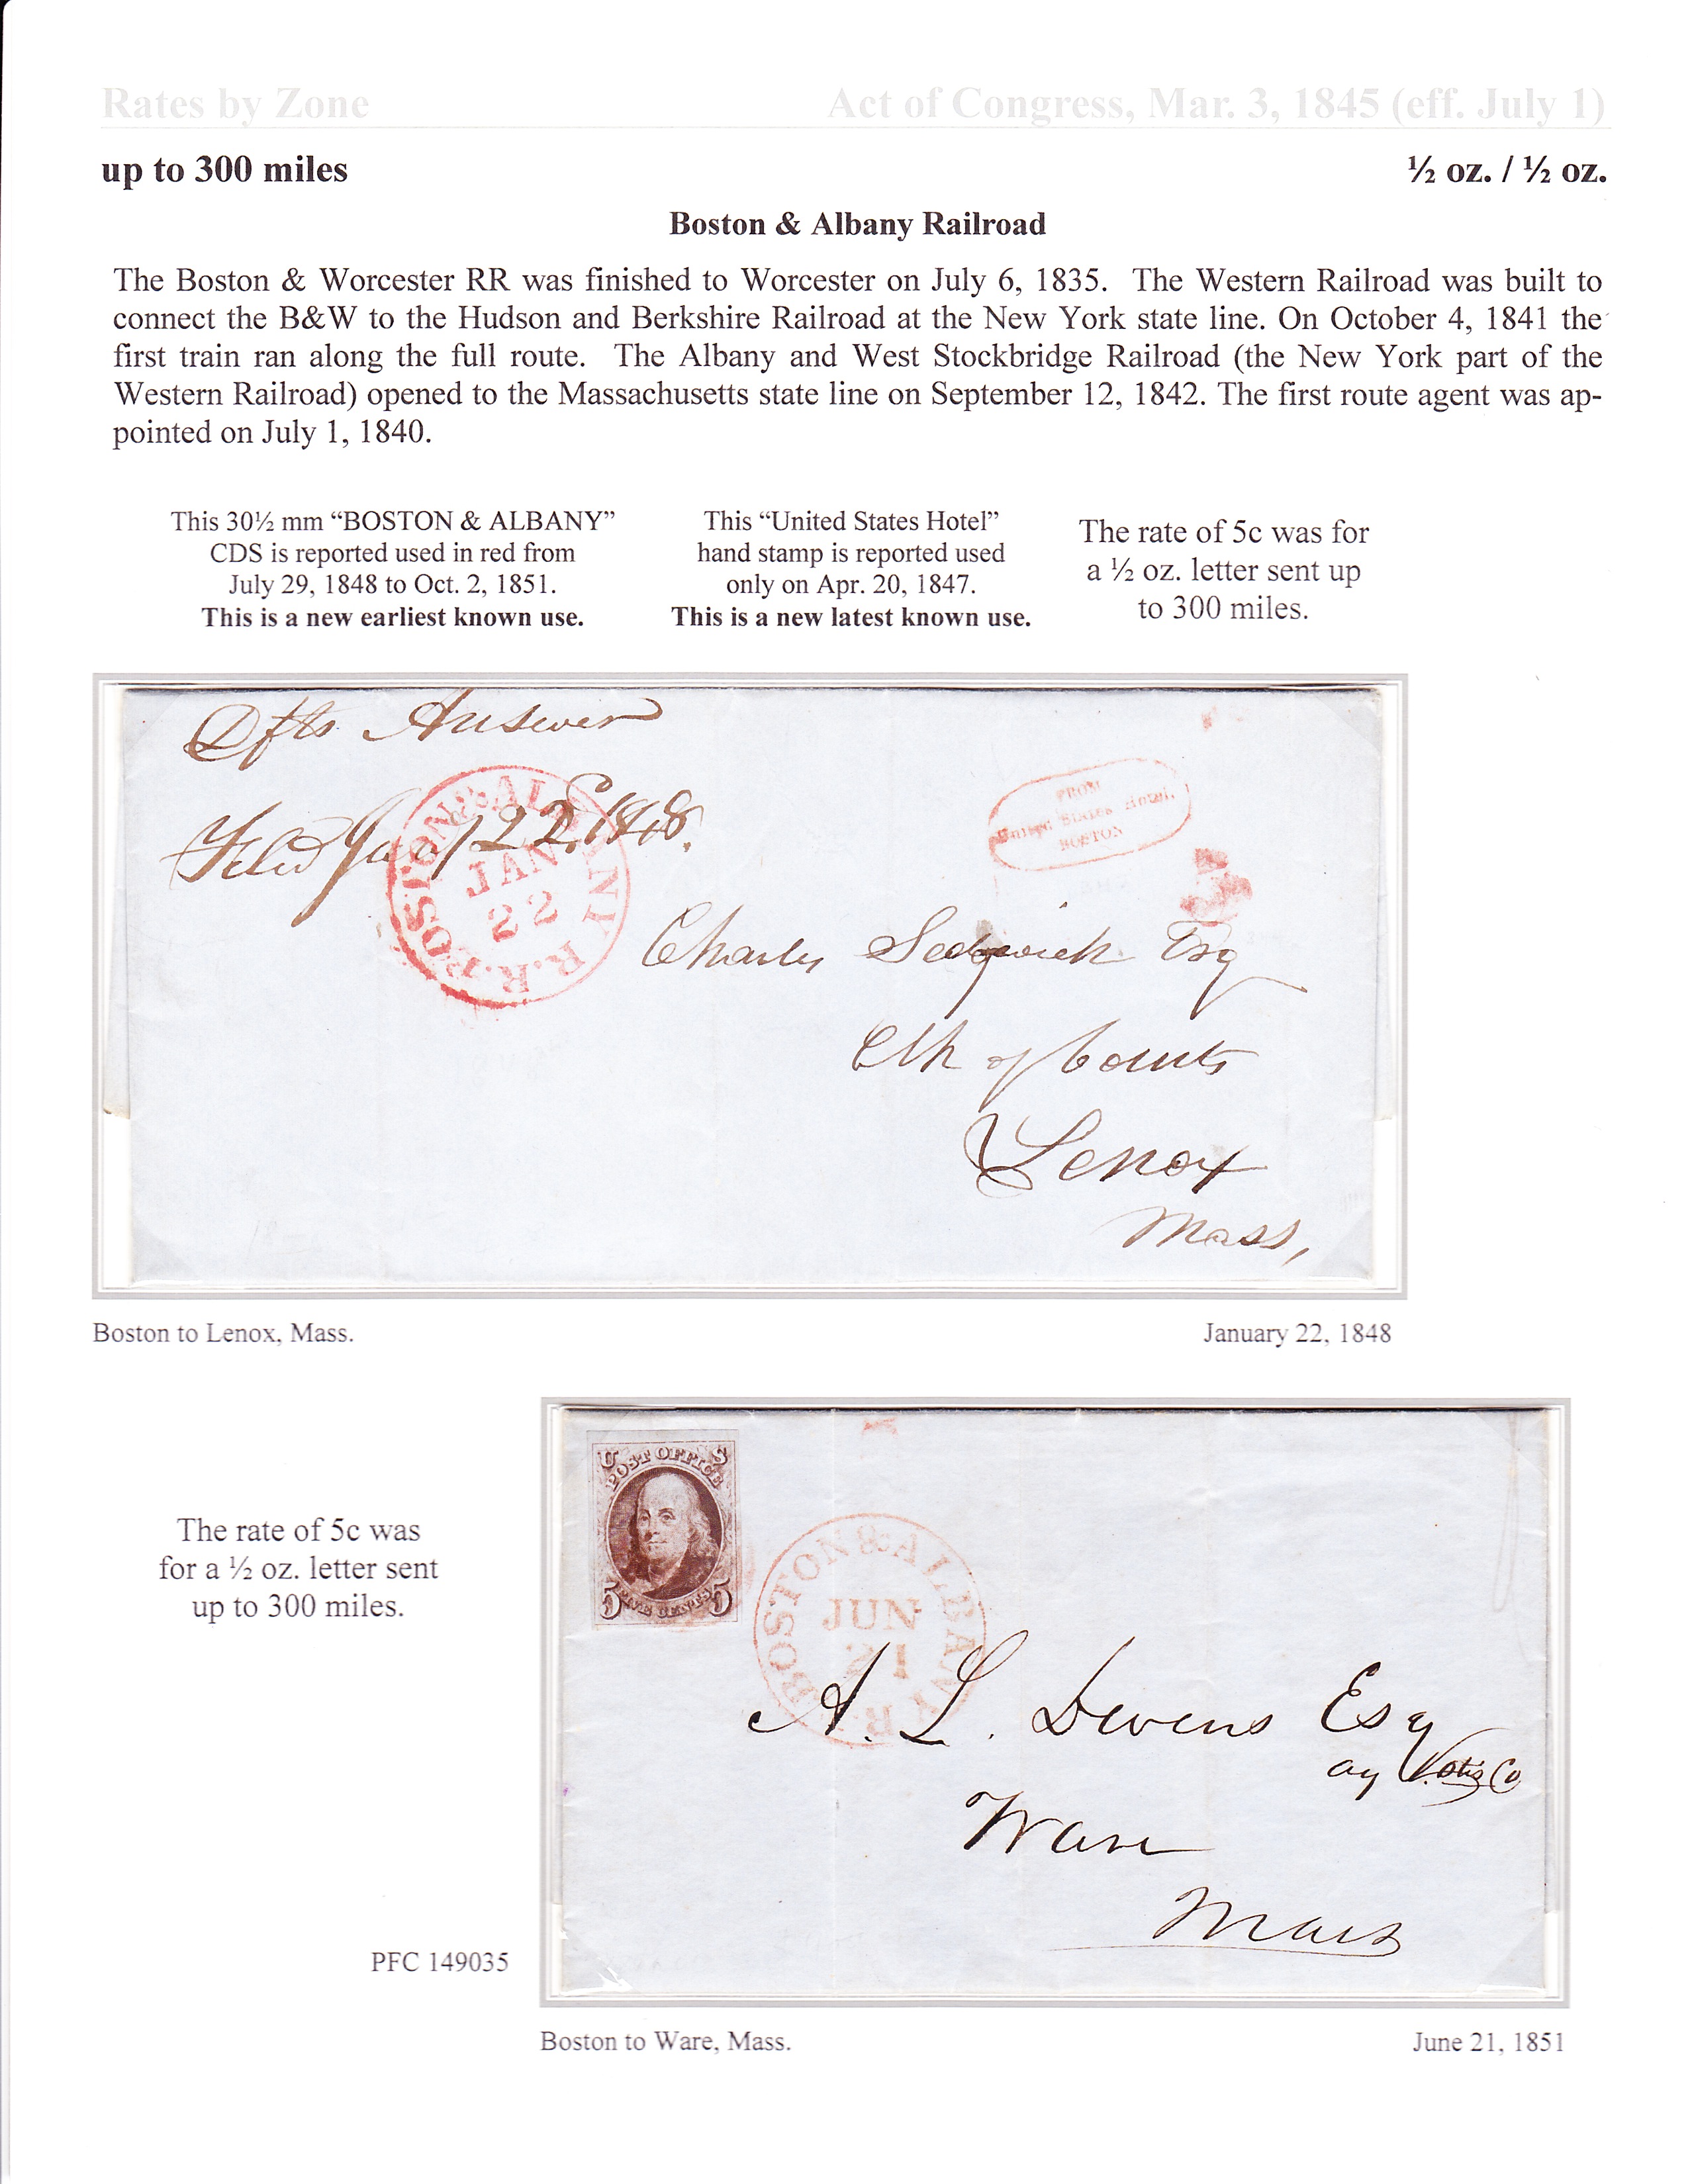 Rates by Zone
Act of Congress, Mar. 3, 1845 (eff. July 1)
up to 300 miles
½ oz. / ½ oz.
Boston & Albany Railroad
The Boston & Worcester RR was finished to Worcester on July 6, 1835. The Western Railroad was built to
connect the B&W to the Hudson and Berkshire Railroad at the New York state line. On October 4, 1841 the
first train ran along the full route. The Albany and West Stockbridge Railroad (the New York part of the
Western Railroad) opened to the Massachusetts state line on September 12, 1842. The first route agent was ap-
pointed on July 1, 1840.
This 30½ mm “BOSTON & ALBANY”
CDS is reported used in red from
July 29, 1848 to Oct. 2, 1851.
This is a new earliest known use.
This “United States Hotel”
hand stamp is reported used
only on Apr. 20, 1847.
This is a new latest known use.
The rate of 5c was for
a ½ oz. letter sent up
to 300 miles.
Dfts Answer
Filed Jany 22d 1848.
BOSTON & ALBANY R.R.
JAN
22
FROM
United States Hotel,
BOSTON
5
Charles Sedgwick Esq
Clk of Courts
Lenox
Mass,
Boston to Lenox, Mass.
January 22, 1848
The rate of 5c was
for a ½ oz. letter sent
up to 300 miles.
U S
POST OFFICE
5 FIVE CENTS 5
BOSTON & ALBANY R.R.
JUN
21
A. L. Devens Esq
Ware
Mass
PFC 149035
Boston to Ware, Mass.
June 21, 1851